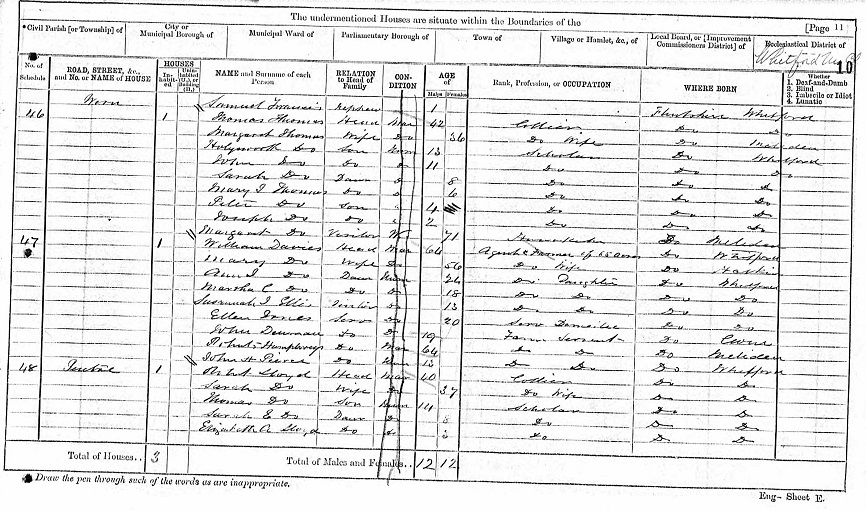 The undermentioned Houses are situate within the Boundaries of the
[Page 11
*Civil Parish [or Township] of
City or Municipal Borough of
Municipal Ward of
Parliamentary Borough of
Town of
Village or Hamlet, &c., of
Local Board, or [Improvement Commissioners District] of
Ecclesiastical District of
Whitford
10
No. of Schedule
ROAD, STREET, &c., and No. or NAME of HOUSE
HOUSES
Inhabited
Uninhabited (U.), or Building (B.)
NAME and Surname of each Person
RELATION to Head of Family
CONDITION
AGE of
Males Females
Rank, Profession, or OCCUPATION
WHERE BORN
Whether
1. Deaf-and-Dumb
2. Blind
3. Imbecile or Idiot
4. Lunatic
Samuel Francis Nephew 1 Flintshire Whitford
46 1 Thomas Thomas Head Mar 42 Collier Do Do
Margaret Thomas Wife Do 36 Do Wife Do
Do Son Unm 13 Scholar Do Whitford
John Do Do 11 Do Do Do
Sarah Do Daur 8 Do Do Do
Mary J Thomas Do 6 Do Do Do
Peter Do Son 4 Do Do Do
Joseph Do Do 2 Do Do Do
Margaret Do Visitor 71 Do Meliden
47 1 William Davies Head Mar 64 Farmer of Acres Do Whitford
Mary Do Wife Do 56 Do Wife Do
Ann J Do Daur Unm 24 Do Daughter Do Whitford
Martha C Do Do 18 Do Do Do Do
Susannah J Ellis Visitor Do 13 Do Do Do Do
Ellen Jones Serv Do 20 Serv Domestic Do Do
John Do Do 19 Farm Servant Do Cwm
Robert Humphreys Do Mar 64 Do Do Do Meliden
John H Pierce Do Unm 13 Do Do Do Whitford
48 1 Robt Lloyd Head Mar 40 Collier Do Do
Sarah Do Wife Do 37 Do Wife Do Do
Thomas Do Son Unm 14 Scholar Do Do
Sarah E Do Daur Do Do Do Do
Elizabeth A Lloyd Do Do Do Do Do
Total of Houses.. 3
Total of Males and Females.. 12 12
* Draw the pen through such of the words as are inappropriate.
Eng- Sheet E.